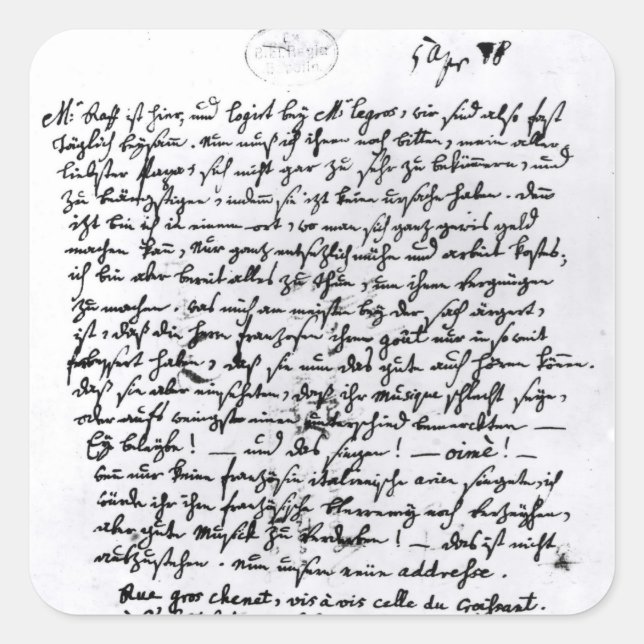 5 Apr 78
Mr: Raff ist hier, und logirt bey Mr: Legros, wir sind also fast
täglich beysamm. Nun muß ich ihnen noch bitten, mein aller
liebster Papa, sich nicht gar zu sehr zu bekümmern, und
zu beängstigen, indem sie izt keine ursache haben. Denn
izt bin ich in einem ort, wo man sich ganz gewis geld
machen kann, Nur ganz entsetzlich mühe und arbeit kostet;
ich bin aber bereit alles zu thun, um ihnen vergnügen
zu machen. was mich am meisten bey der sach ärgert,
ist, daß die Herrn franzosen ihren goût nur in so weit
verbessert haben, daß sie nun das gute auch hören können.
daß sie aber einseheten, daß ihr Musique schlecht seye,
oder aufs wenigste einen unterschied bemerckten —
Ey beleybe! — und das singen! — oimè! —
wenn nur keine französin italienische arien singete, ich
würde ihr ihre französische Plerrerey noch verzeyhen,
aber gute Musik zu verderben! — das ist nicht
auszustehen. Nun unsere neüe addresse.
Rue gros chenet, vis à vis celle du Croißant.